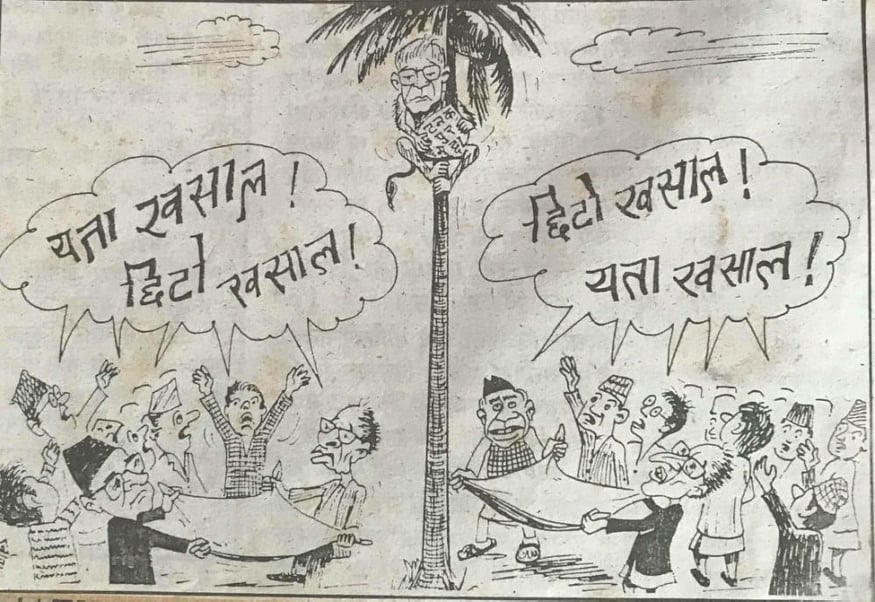 यता खसाल !
छिटो खसाल !
छिटो खसाल !
यता खसाल !